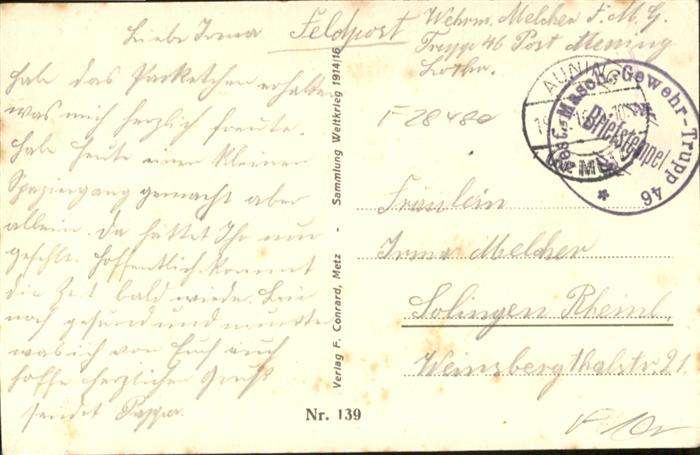 Liebe Irma
hab das Packetchen erhalten
was mich herzlich freute.
Habe heute einen kleinen
Spaziergang gemacht aber
allein. Da hättet Ihr nur
gefehlt. Hoffentlich kommt
die Zeit bald wieder. Bin
noch gesund und munter
was ich von Euch auch
hoffe herzlichen Gruß
sendet Pappa.
Feldpost
Wehrm. Melcher F. M. G.
Trupp 46 Post Menning
Lothr.
F 28480
Fest.-Masch.-Gewehr-Trupp 46
Briefstempel
Fräulein
Irma Melcher
Solingen Rheinl.
Weinsbergthalstr. 21.
Verlag F. Conrard, Metz - Sammlung Weltkrieg 1914/16
Nr. 139